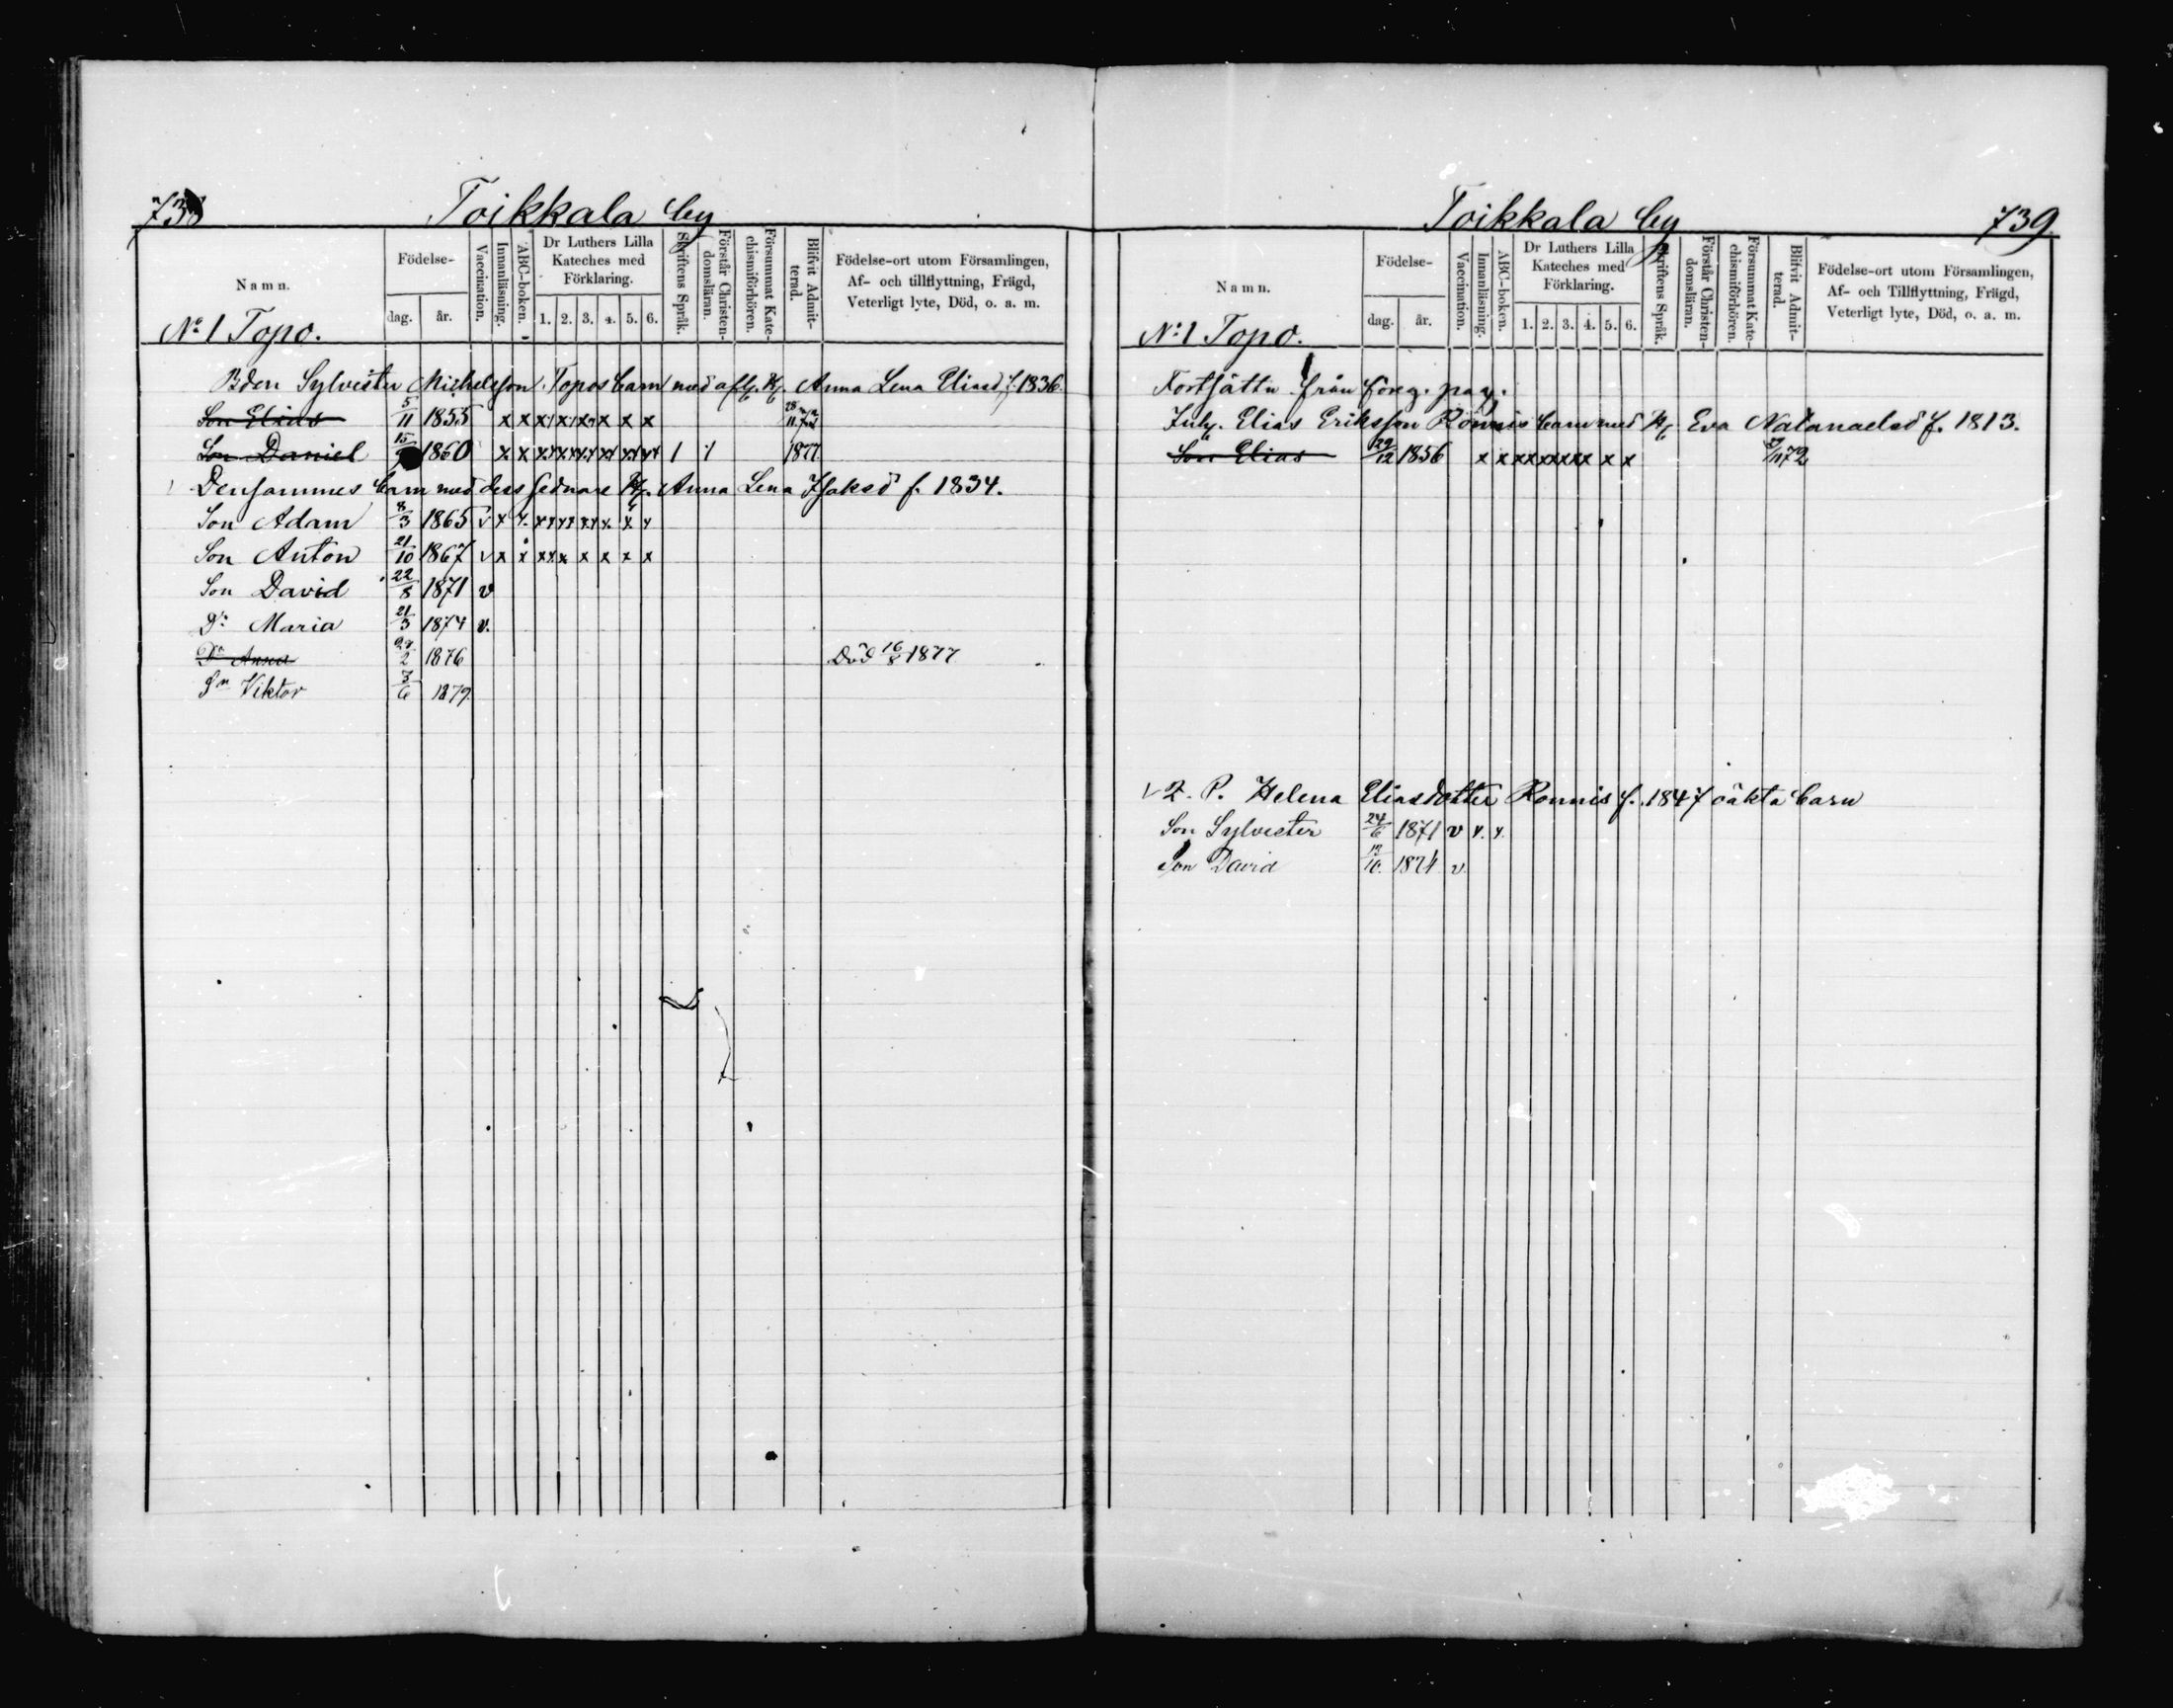 738 Toikkala by
Namn. Födelse- dag. år. Vaccination. Innanläsning. ABC-boken. Dr Luthers Lilla Kateches med Förklaring. 1. 2. 3. 4. 5. 6. Skriftens Språk. Förstår Christendomsläran. Försummat Katechismiförhören. Blifvit Admitterad. Födelse-ort utom Församlingen, Af- och tillflyttning, Frägd, Veterligt lyte, Död, o. a. m.
No 1 Topo.
Bden Sylvester Michelsson Topos barn med afl. H. Anna Lena Eliasd f. 1836.
Son Elias 5/11 1855 x x x x x x x x 28/11 72
Son Daniel 15 1860 x x xx xx xx xx xx xx 1 1 1877
Densammes barn med dess sednare H. Anna Lena Isaksd f. 1834.
Son Adam 8/3 1865 v x x xx xx xx x x x
Son Anton 21/10 1867 v x x xx x x x x x
Son David 22/8 1871 v
Dr Maria 21/3 1874 v.
Dr Anna 2 1876 Död 16/8 1877
Sn Viktor 3/6 1879.
Toikkala by 739.
Namn. Födelse- dag. år. Vaccination. Innanläsning. ABC-boken. Dr Luthers Lilla Kateches med Förklaring. 1. 2. 3. 4. 5. 6. Skriftens Språk. Förstår Christendomsläran. Försummat Katechismiförhören. Blifvit Admitterad. Födelse-ort utom Församlingen, Af- och Tillflyttning, Frägd, Veterligt lyte, Död, o. a. m.
No 1 Topo.
Fortsättn från föreg. pag.
Inh. Elias Eriksson Ronnis barn med H. Eva Natanaelsd f. 1813.
Son Elias 29/12 1856 x x xx xx xx x x x /11 72
v 2. P. Helena Eliasdotter Ronnis f. 1847 oäkta barn
Son Sylvester 24/6 1871 v x. x.
Son David 13/10. 1874 v.